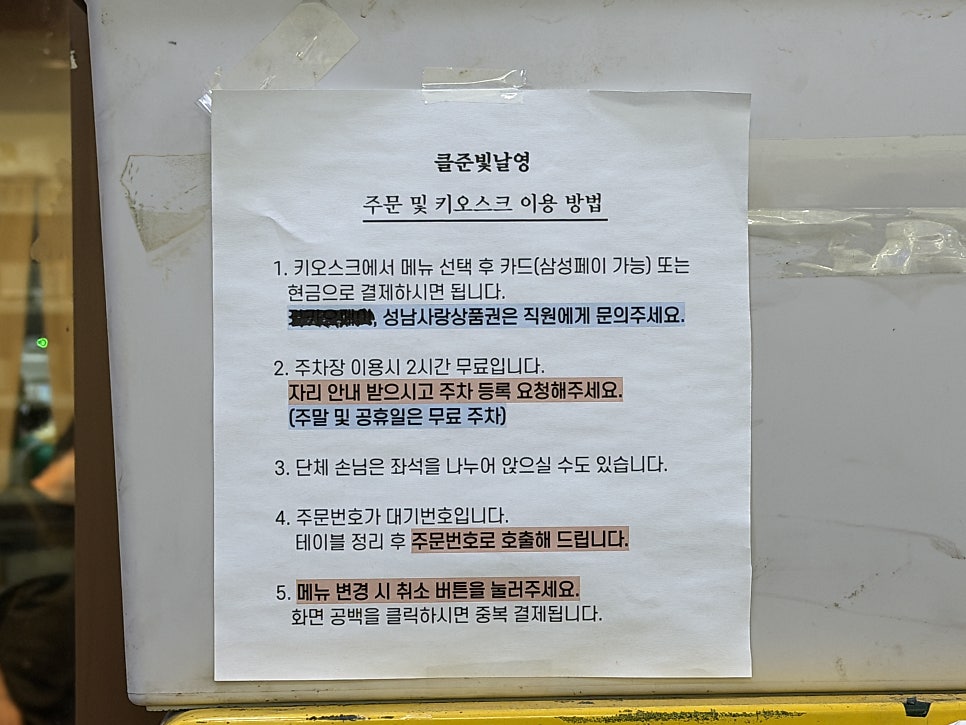 클준빛날영
주문 및 키오스크 이용 방법
1. 키오스크에서 메뉴 선택 후 카드(삼성페이 가능) 또는
현금으로 결제하시면 됩니다.
, 성남사랑상품권은 직원에게 문의주세요.
2. 주차장 이용시 2시간 무료입니다.
자리 안내 받으시고 주차 등록 요청해주세요.
(주말 및 공휴일은 무료 주차)
3. 단체 손님은 좌석을 나누어 앉으실 수도 있습니다.
4. 주문번호가 대기번호입니다.
테이블 정리 후 주문번호로 호출해 드립니다.
5. 메뉴 변경 시 취소 버튼을 눌러주세요.
화면 공백을 클릭하시면 중복 결제됩니다.